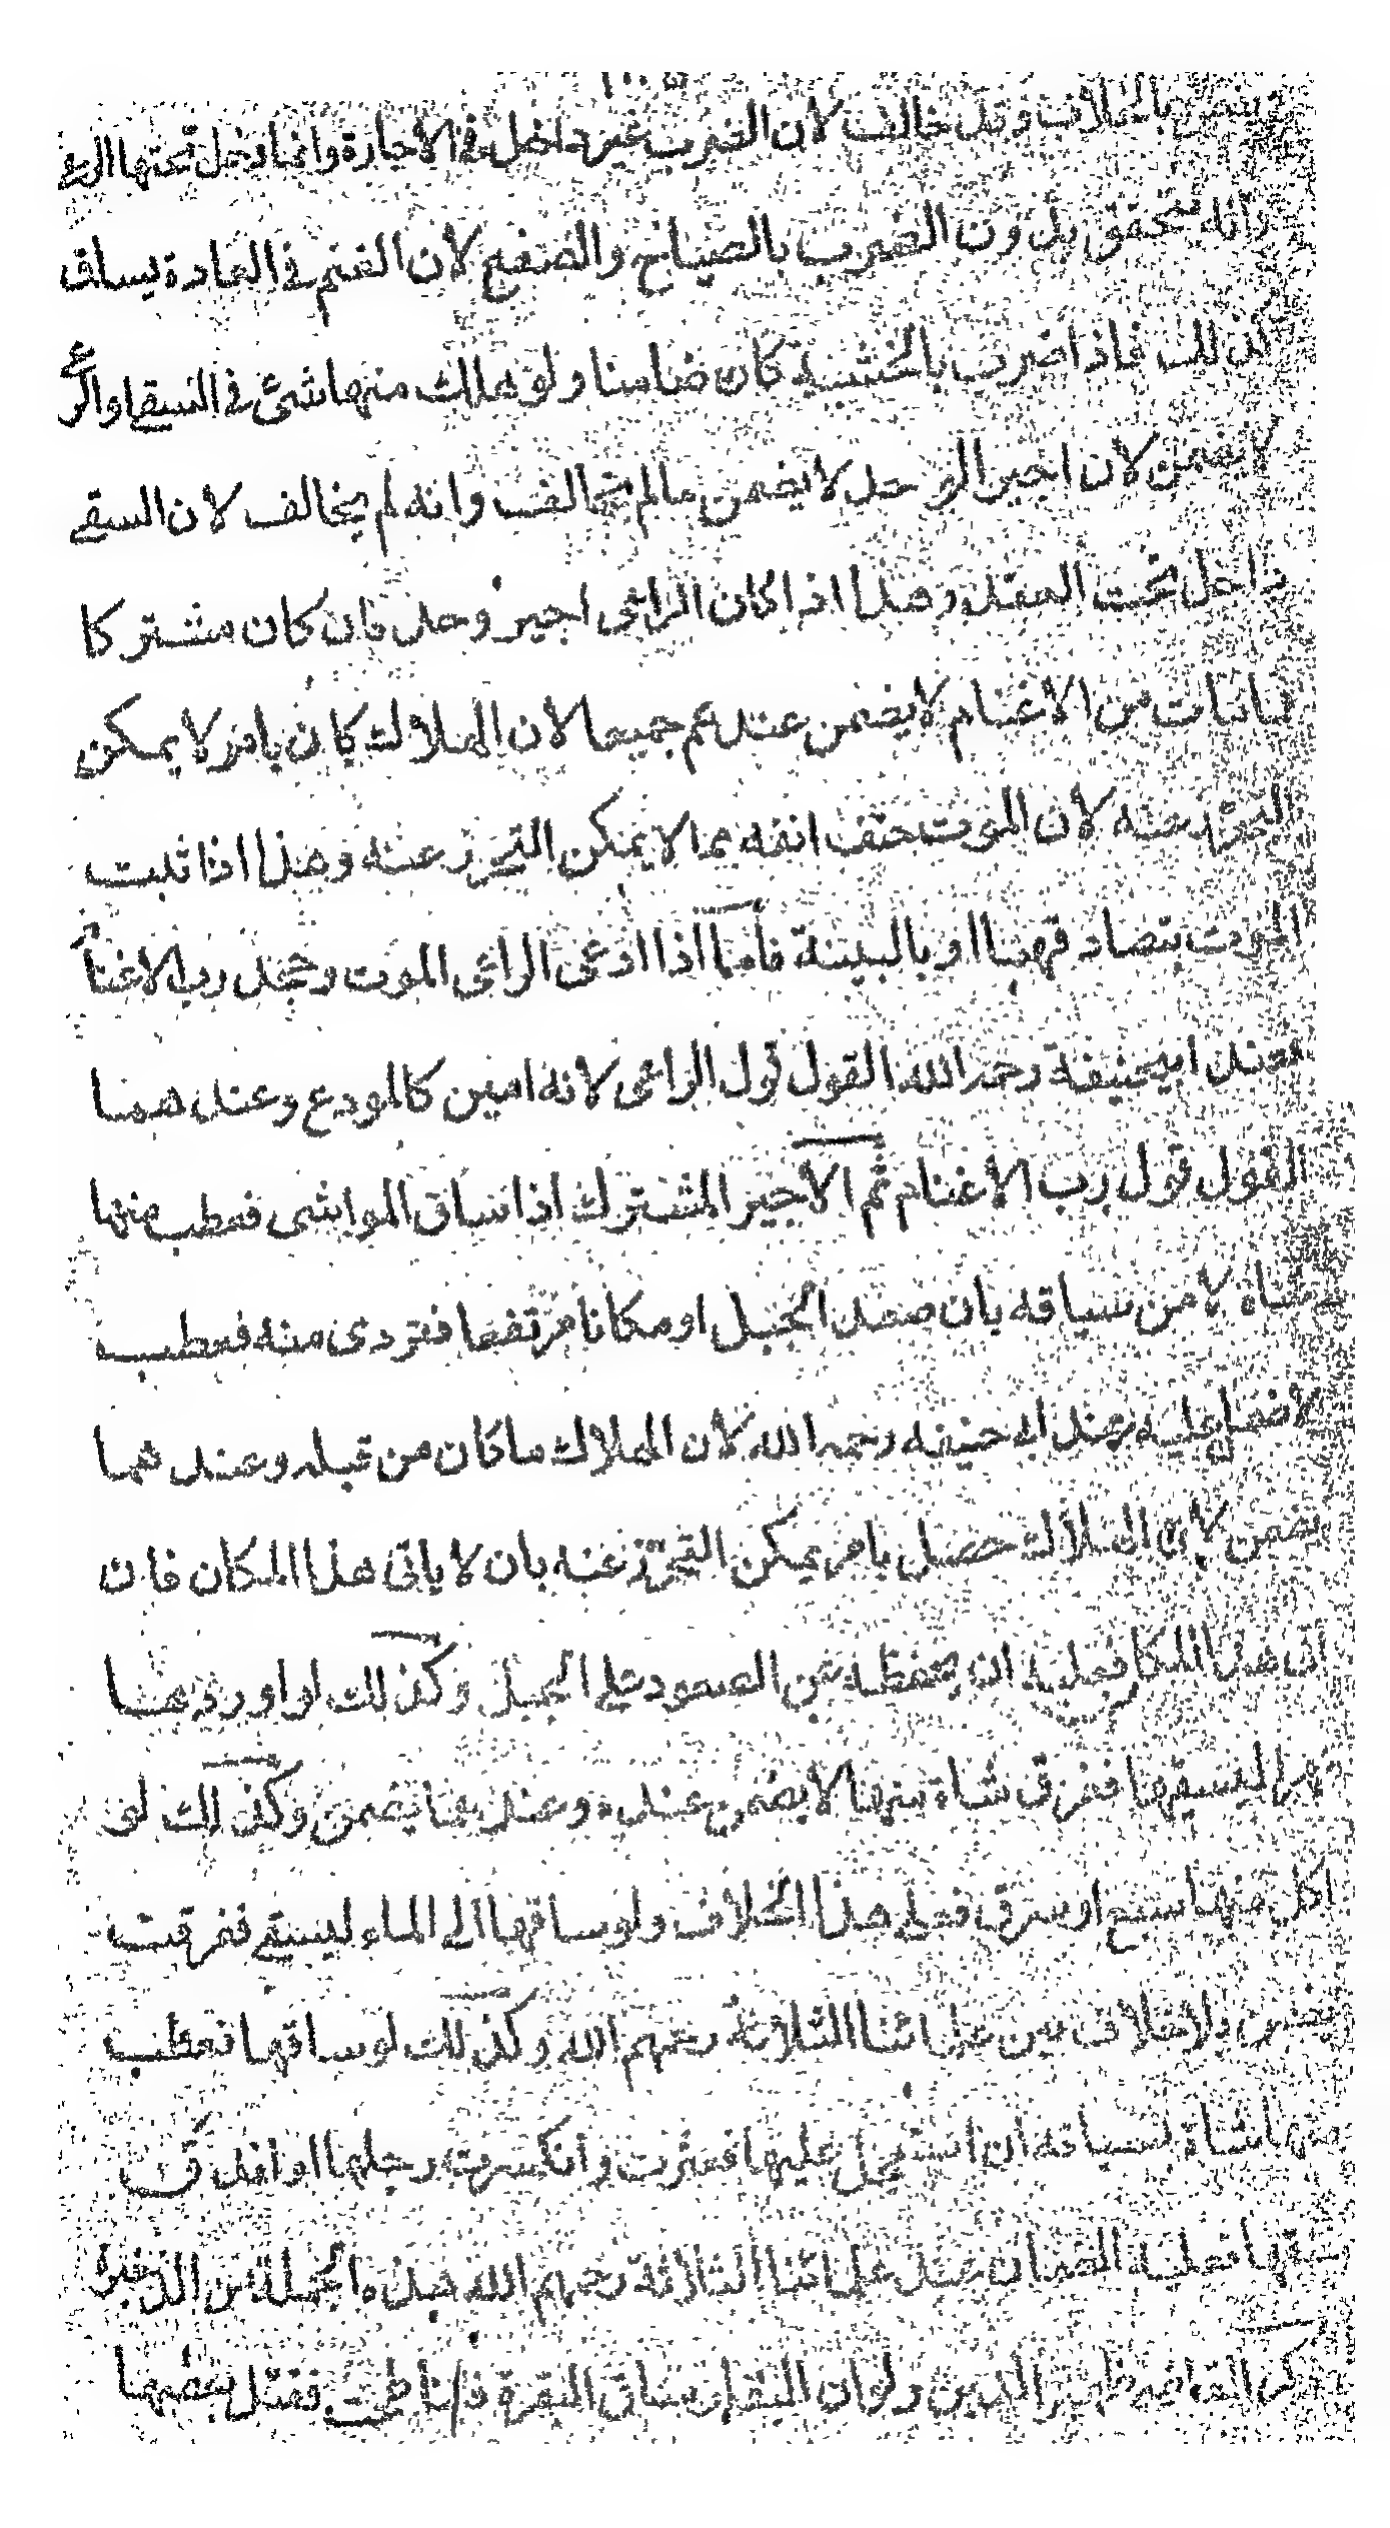 يضمن بالخلاف وقد خالف لان الضرب غير داخل في الاجارة وانما دخل تحتها الرعي
وانه يتحقق بدون الضرب بالصياح والصفير لان الغنم في العادة يساق
كذلك فاذا ضرب بالخشبة كان ضامنا ولو هلك منها شئ في السقي او الرعي
لا يضمن لان اجير الوحد لا يضمن مالم يخالف وانه لم يخالف لان السقي
داخل تحت العقد وهذا اذا كان الراعى اجير وحد فان كان مشتركا
فما مات من الاغنام لا يضمن عندهم جميعا لان الهلاك كان بامر لا يمكن
التحرز عنه لان الموت حتف انفه مما لا يمكن التحرز عنه وهذا اذا ثبت
الموت بتصادقهما او بالبينة فاما اذا ادعى الراعى الموت وجحد رب الاغنام
فعند ابيحنيفة رحمه الله القول قول الراعى لانه امين كالمودع وعندهما
القول قول رب الاغنام ثم الاجير المشترك اذا ساق المواشى فعطب منها
شاة لا من سياقه بان صعد الجبل او مكانا مرتفعا فتردى منه فعطب
لا ضمان عليه عند ابى حنيفه رحمه الله لان الهلاك ما كان من قبله وعندهما
يضمن لان الهلاك حصل بامر يمكن التحرز عنه بان لا ياتى هذا المكان فان
اتى هذا المكان فعليه ان يحفظه عن الصعود على الجبل وكذلك لو اوردها
نهرا ليسقيها فغرق شاة منها لا يضمن عنده وعندهما يضمن وكذلك لو
اكل منها سبع او سرق فعلى هذا الخلاف ولو ساقها الى الماء ليسقى فغرقت
يضمن بلا خلاف بين علمائنا الثلاثة رحمهم الله وكذلك لو ساقها فعطب
منها شاة لسياقه ان استعجل عليها فعثرت وانكسرت رجلها او اندق
عنقها فعليه الضمان عند علمائنا الثلاثة رحمهم الله هذه الجملة من الذخيرة
ذكر القاضى ظهير الدين ولو ان البقار ساق البقرة فتناطحت فقتل بعضها